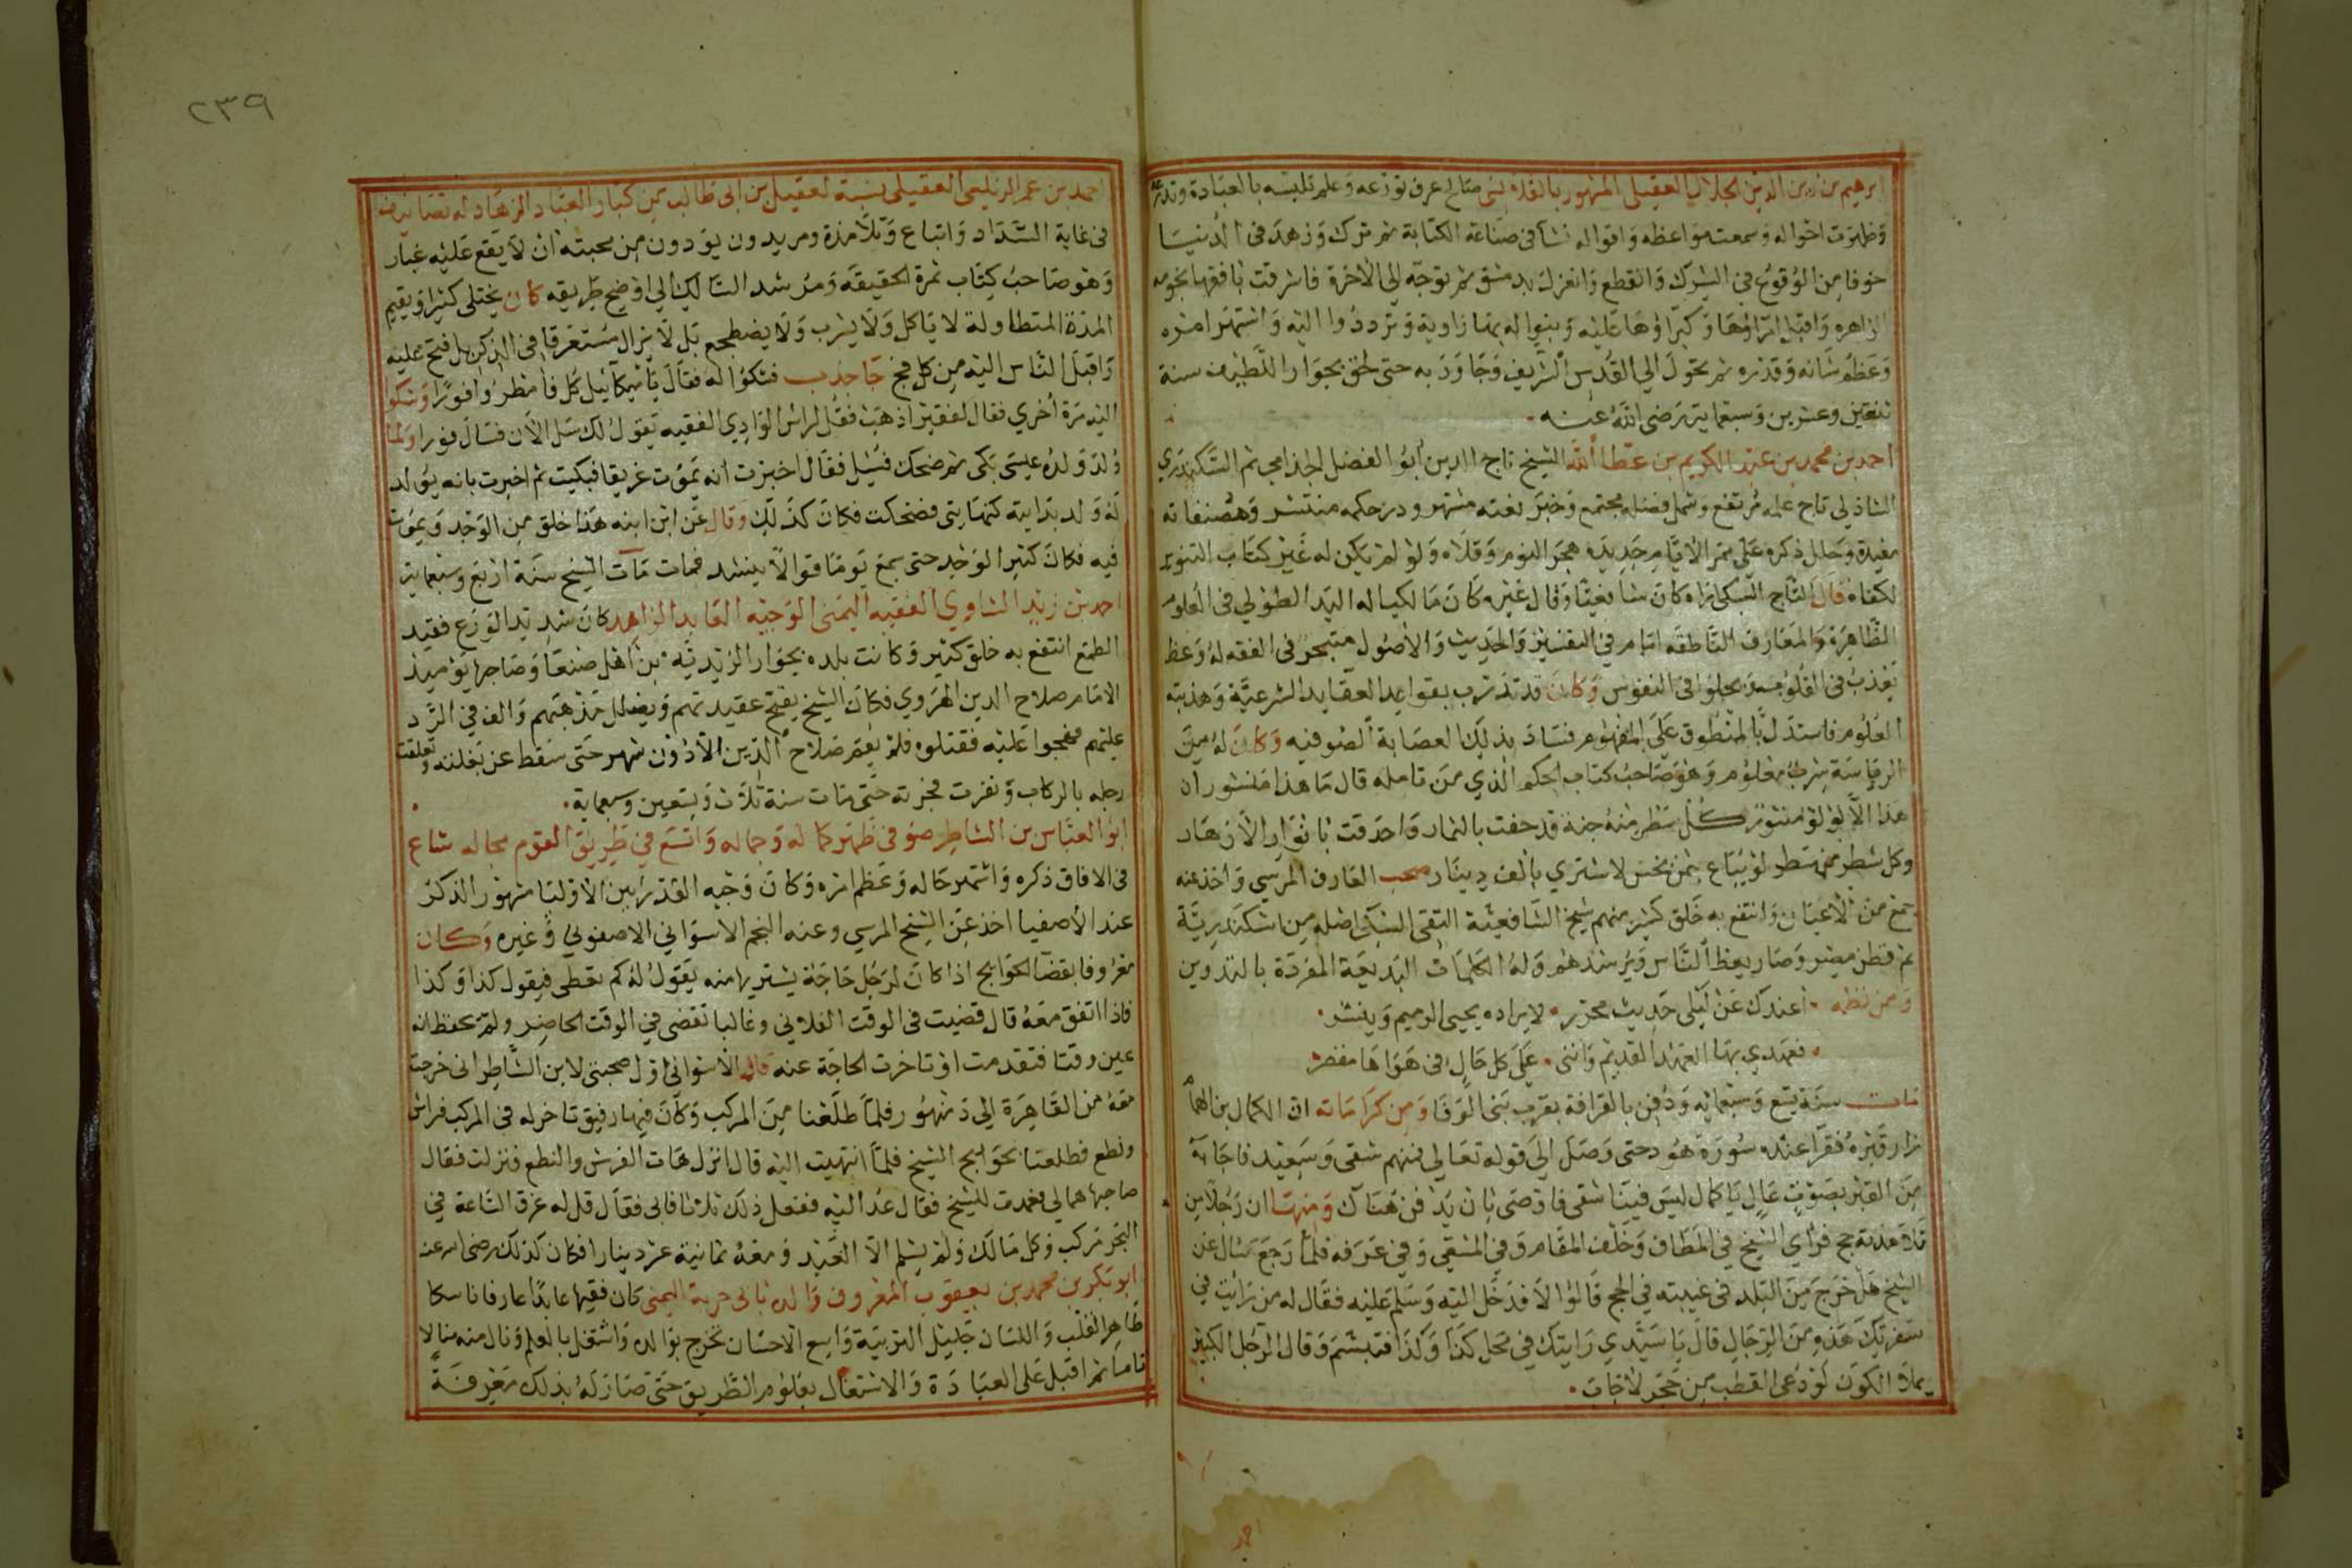 ابرهيم بن زين الدين الجلاليا العقيلى المشهور بالقلانسى صالح عرف تورعه وعلم تلبسه بالعبادة
وظهرت احواله وسمعت مواعظه واقواله نشأ فى صناعة الكتابة ثم ترك وزهد فى الدنيا
خوفا من الوقوع فى الشرك وانقطع وانعزل بدمشق ثم توجه الى الاخرة فاشرقت بافقها نجومه
الزاهره واقبل امراؤها وكبراؤها عليه وبنوا له بها زاوية وترددوا اليه واشتهر امره
وعظم شانه وقدره ثم تحول الى القدس الشريف وجاور به حتى لحق بجوار اللطيف سنة
ثنتين وعشرين وسبعماية رضى الله عنه
احمد بن محمد بن عبد الكريم بن عطا الله الشيخ تاج الدين ابو الفضل الجذامى ثم السكندري
الشاذلى تاج علمه مرتفع وشمل فضله مجتمع وخبر نعته مشتهر ودر حكمه منتشر ومصنفاته
مفيدة وحلل ذكره على ممر الايام جديده هجر النوم وقلاه ولو لم يكن له غير كتاب التنوير
لكفاه قال التاج السبكى نراه كان شافعيا وقال غيره كان مالكيا له اليد الطولى فى العلوم
الظاهرة والمعارف الناطقه امام فى التفسير والحديث والاصول متبحر فى الفقه له وعظ
يعذب فى القلوب ويحلو فى النفوس وكان قد تدرب بقواعد العقايد الشرعية وهذبته
العلوم فاستدل بالمنطوق على المفهوم فساد بذلك لعصابة الصوفيه وكان له من
الرياسة شرب معلوم وهو صاحب كتاب الحكم الذي من تامله قال ما هذا منشور ان
هذا الا لؤلؤ منثور كل سطر منه جنة قد حفت بالثمار واحدقت بانوار الازهار
وكل شطر منهن سطر لو يباع بثمن بخس لاشتري بالف دينار صحب العارف المرسى واخذ عنه
جمع من الاعيان وانتفع به خلق كثير منهم شيخ الشافعية التقى السبكى اصله من اسكندرية
ثم قطن مصر وصار يعظ الناس ويرشدهم وله الكلمات البديعة المفردة بالتدوين
ومن نظمه اعندك عن ليلى حديث محرر لايراده يحيى الرميم وينشر
فعهدي بها العهد القديم واننى على كل حال فى هواها مقصر
مات سنة تسع وسبعمايه ودفن بالقرافة بقرب بنى الوفا ومن كراماته ان الكمال بن الهمام
زار قبره فقرأ عنده سورة هود حتى وصل الى قوله تعالى فمنهم شقى وسعيد فاجابه
من القبر بصوت عال يا كمال ليس فينا شقى فاوصى بان يدفن هناك ومنها ان رجلا من
تلامذته حج فرأى الشيخ فى المطاف وخلف المقام وفى المسعى وفى عرفه فلما رجع سال عن
الشيخ هل خرج من البلد فى غيبته فى الحج قالوا لا فدخل اليه وسلم عليه فقال له من رايت فى
سفرتك هذه من الرجال قال يا سيدي رايتك فى محل كذا وكذا فتبسم وقال الرجل الكبير
يملا الكون لو دعى القطب من حجر لاجاب
احمد بن عمر الزيلعى العقيلى نسبة لعقيل بن ابى طالب من كبار العباد الزهاد له تصانيف
فى غاية السداد واتباع وتلامذة ومريدون يودون من محبته ان لا يقع عليه غبار
وهو صاحب كتاب ثمرة الحقيقه ومرشد السالك الى اوضح طريقه كان يختلى كثيرا ويقيم
المدة المتطاولة لا ياكل ولا يشرب ولا يضطجع بل لا يزال مستغرقا فى الذكر بل فتح عليه
واقبل الناس اليه من كل فج جا جذب فشكوا له فقال يا ميكائيل كل فامطروا فورا وشكوا
اليه مرة اخري فقال لفقير اذهب فقل لراس الوادي الفقيه يقول لك سل الان فسال فورا ولما
ولد ولده عيسى بكى ثم ضحك فسيل فقال اخبرت انه يموت غريقا فبكيت ثم اخبرت بانه يولد
له ولد بدايته كنهايتى فضحكت فكان كذلك وقال عن ابن ابنه هذا خلق من الوجد ويموت
فيه فكان كثير الوجد حتى سمع يوما قوالا ينشد فمات مات الشيخ سنة اربع وسبعماية
احمد بن زيد الشاوري الفقيه اليمنى الوجيه العابد الزاهد كان شديد الورع فقيد
الطمع انتفع به خلق كثير وكانت بلده بجوار الزيديه من اهل صنعا وصاحبها يوميذ
الامام صلاح الدين الهروي فكان الشيخ يقبح عقيدتهم ويضلل مذهبهم والف فى الرد
عليهم فهجموا عليه فقتلوه فلم يقم صلاح الدين الا دون شهر حتى سقط عن بغلته وتعلقت
رجله بالركاب ونفرت فجرته حتى مات سنة ثلاث وتسعين وسبعماية
ابو العباس بن الشاطر صوفى ظهر كماله وجماله واتسع فى طريق القوم مجاله شاع
فى الافاق ذكره واشتهر حاله وعظم امره وكان وجيه القدر بين الاوليا مشهور الذكر
عند الاصفيا اخذ عن الشيخ المرسى وعنه النجم الاسوانى الاصفونى وغيره وكان
معروفا بقضا الحوايج اذا كان لرجل حاجة يشتريها منه يقول له كم تعطى فيقول كذا وكذا
فاذا اتفق معه قال قضيت فى الوقت الفلانى وغالبا تقضى فى الوقت الحاضر ولم يحفظ انه
عين وقتا فتقدمت او تاخرت الحاجة عنه قال الاسوانى اول صحبتى لابن الشاطر انى خرجت
معه من القاهرة الى دمنهور فلما طلعنا من المركب وكان فيها رفيق تاخر له فى المركب فراش
ونطع فطلعنا بحوايج الشيخ فلما انتهيت اليه قال انزل هات الفرش والنطع فنزلت فقال
صاحبهما هما لى فعدت للشيخ فقال عد اليه ففعل ذلك ثلاثا فابى فقال قل له غرق الساعة فى
البحر مركب وكل مالك ولم يسلم الا العبد ومعه ثمانية عشر دينارا فكان كذلك رضى الله عنه
ابو بكر بن محمد بن يعقوب المعروف والده بابى حربة اليمنى كان فقيها عابدا عارفا ناسكا
طاهر القلب واللسان جليل التربية واسع الاحسان تخرج بوالده واشتغل بالعلم ونال منه منالا
تاما ثم اقبل على العبادة والاشتغال بعلوم الطريق حتى صار له بذلك معرفة
٢٣٩